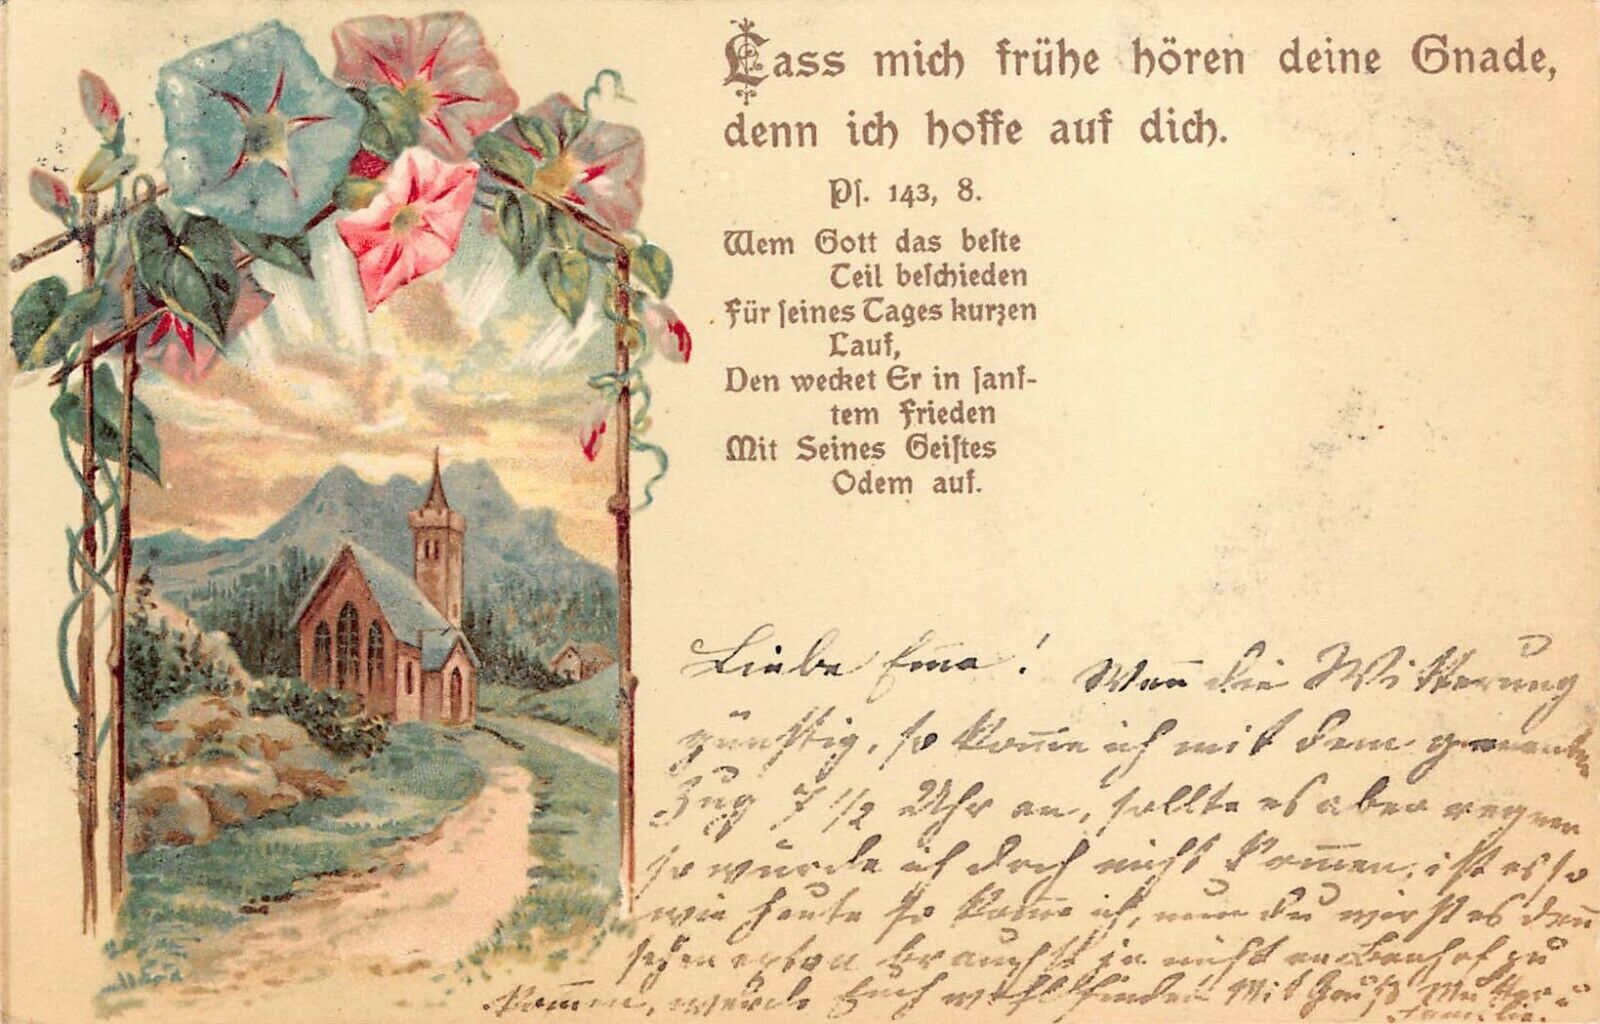 Lass mich frühe hören deine Gnade,
denn ich hoffe auf dich.
Ps. 143, 8.
Wem Gott das beste
Teil beschieden
Für seines Tages kurzen
Lauf,
Den wecket Er in sanf-
tem Frieden
Mit Seines Geistes
Odem auf.
Liebe Em̅a! Wen̅ die Witterung
günstig, so kom̅e ich mit dem
Zug 7 1/2 Uhr an, sollte es aber regnen
so würde ich doch nicht kom̅en, ist es so
wie heute so kom̅e ich, nun du wirst es den̅
sehen brauchst ja nicht an Bahnhof zu
kom̅en, werde Euch wohl finden Mit Gruß Mutter u
Familie.